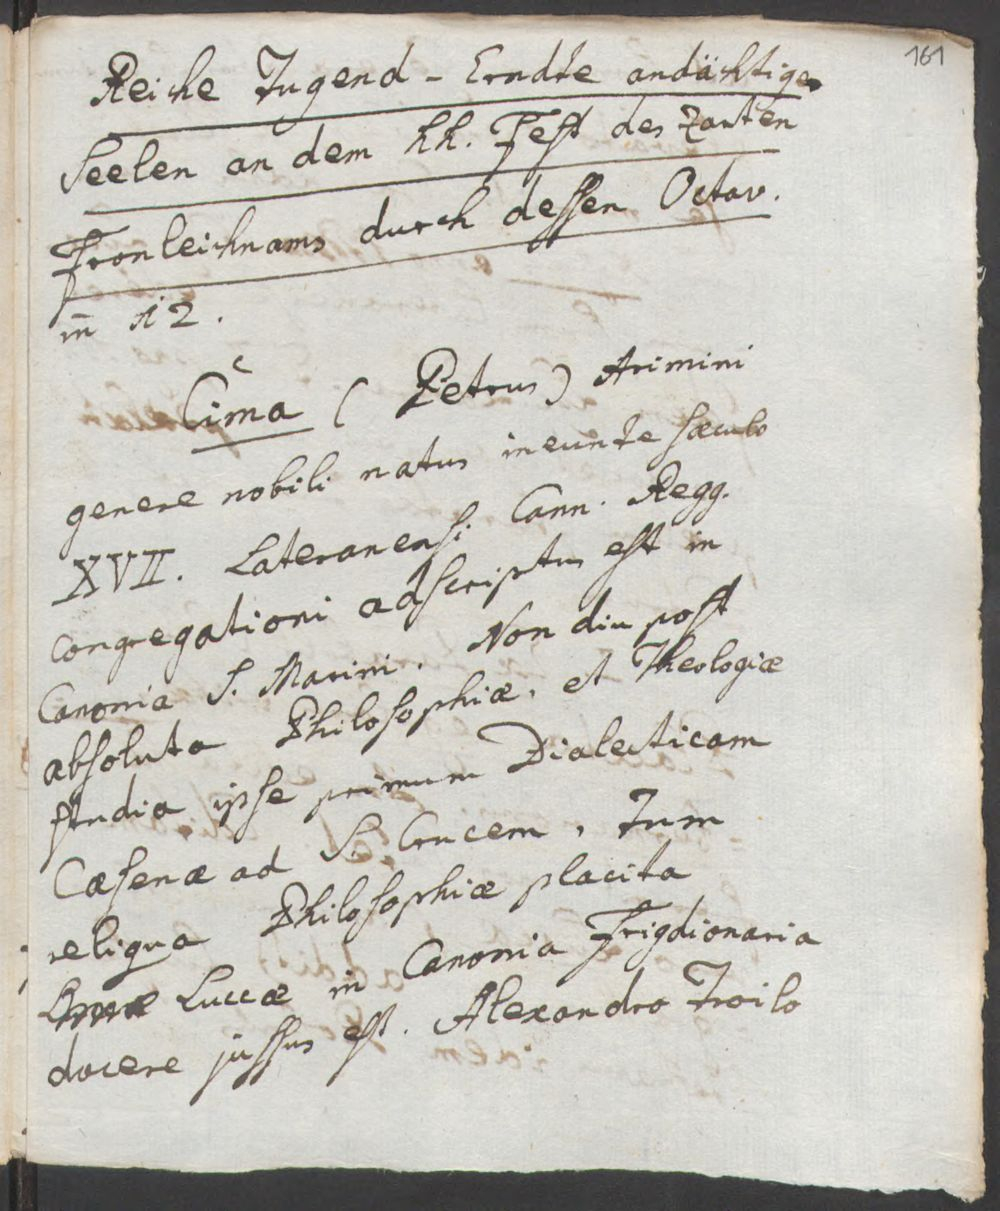 161
Reiche Tugend - Erndte andächtiger
Seelen an dem hh. Fest des zarten
Fronleichnams durch dessen Octav.
in 12.
Cima (Petrus) Arimini
genere nobili natus ineunte sæculo
XVII. Lateranensi Cann. Regg.
congregationi adscriptus est in
Canonia S. Marini. Non diu post
absoluta Philosophiæ, et Theologiæ
studia ipse primum Dialecticam
Cæsenæ ad S. Crucem, Tum
reliqua Philosophiæ placita
Luccæ in Canonia Frigdionaria
docere jussus est. Alexandro Troilo